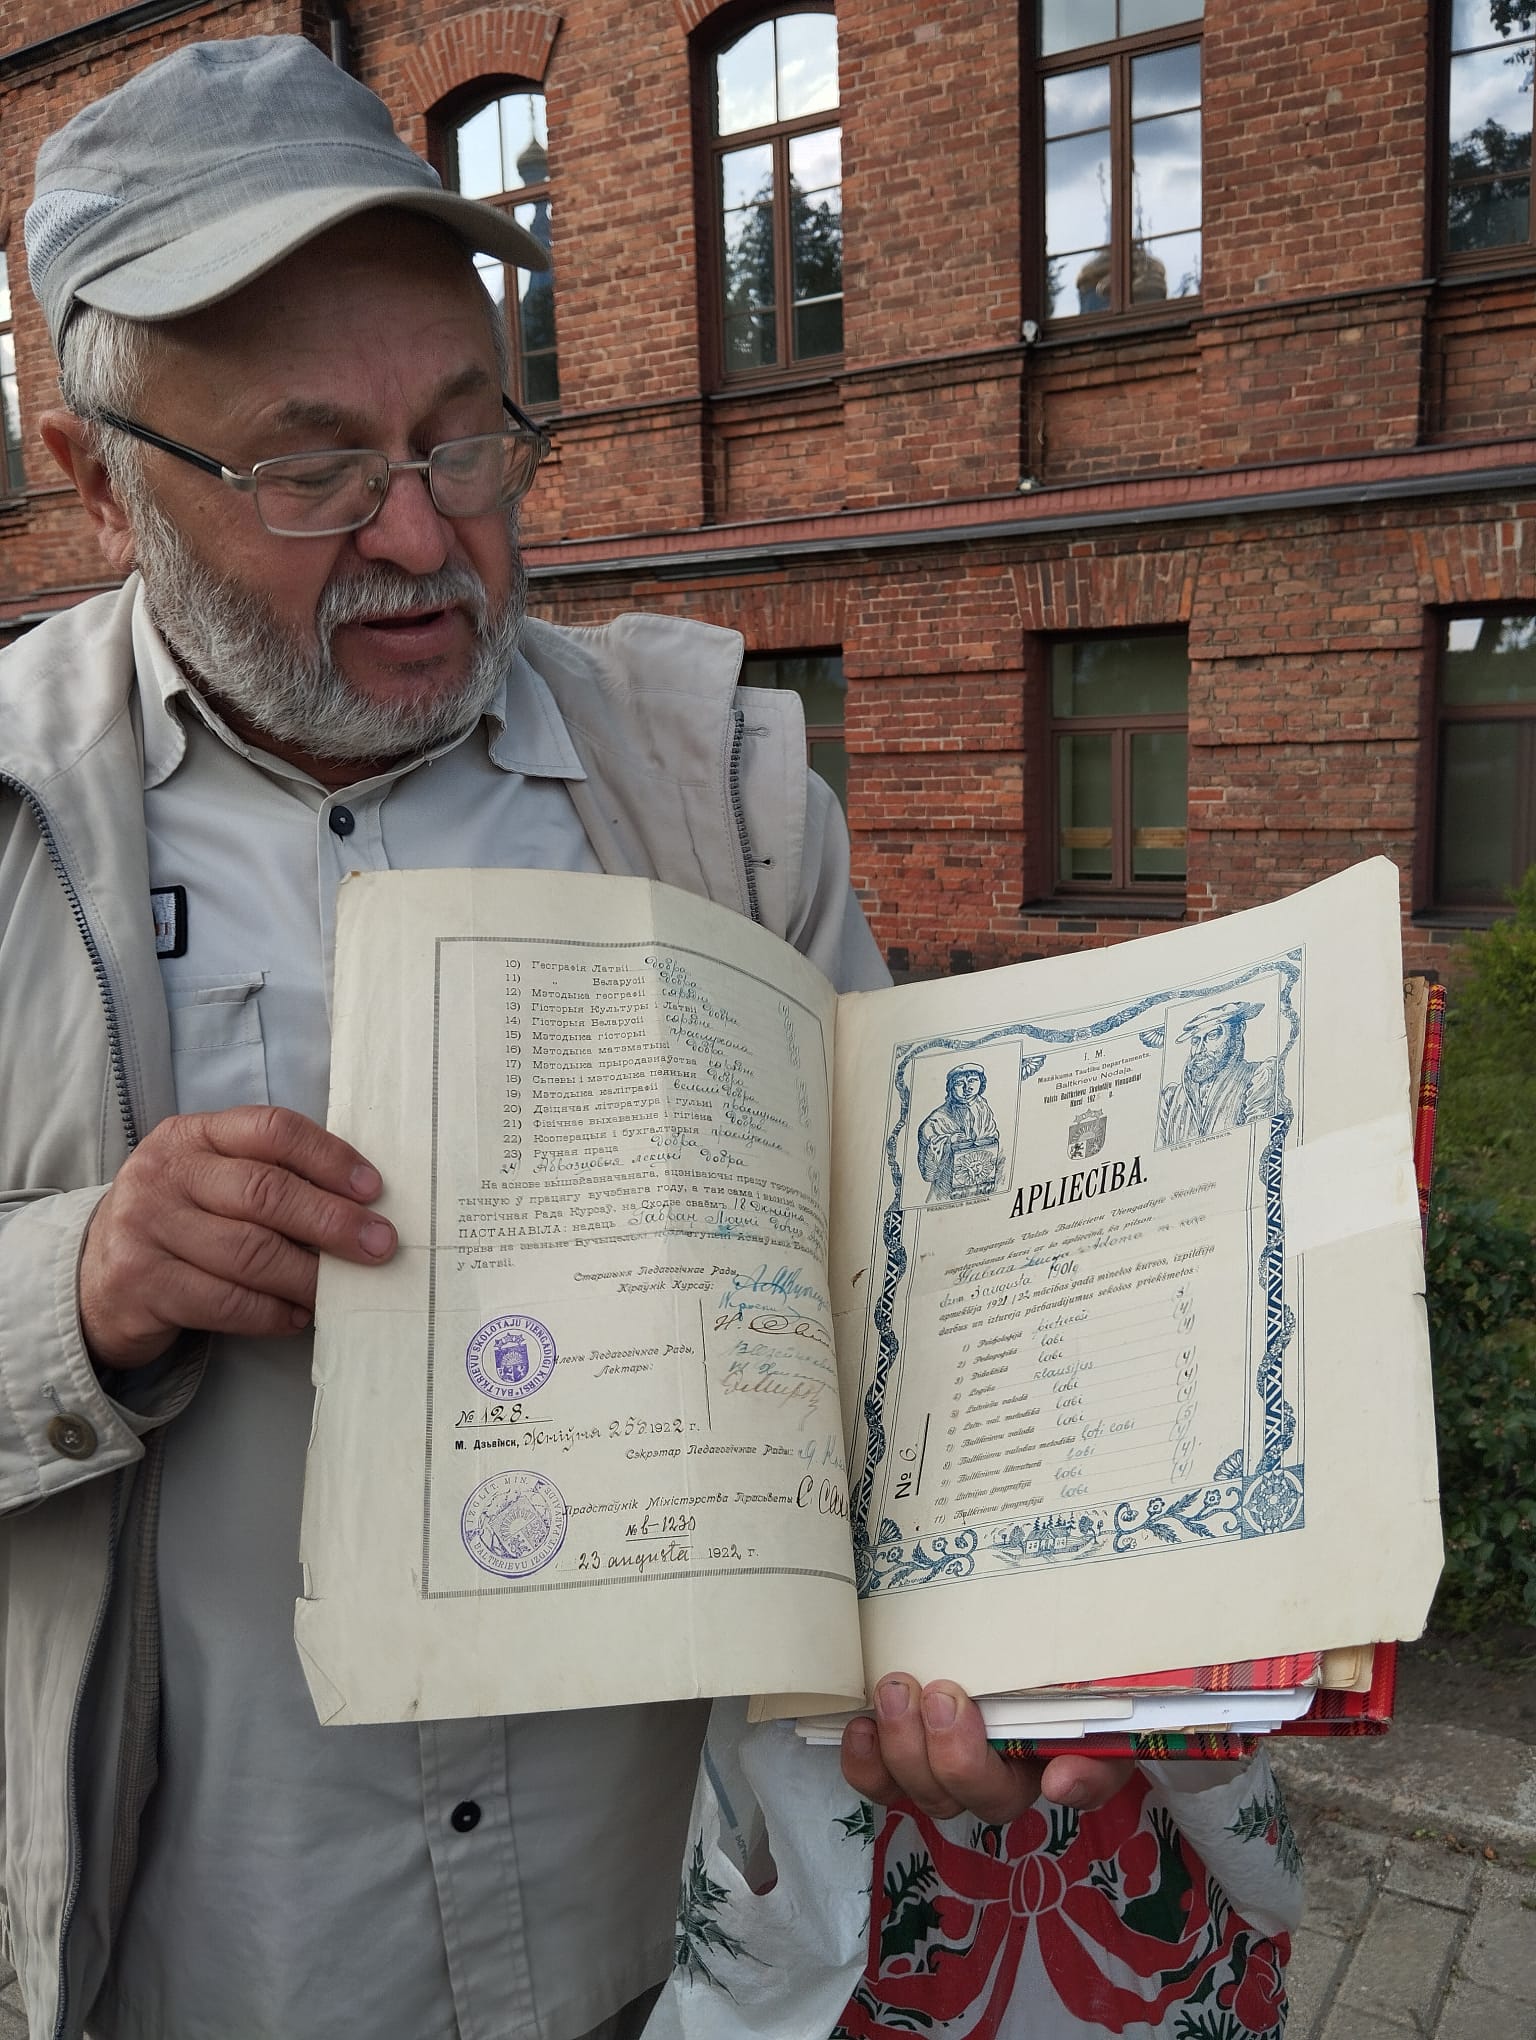 10) Географія Латвіі добра
11) „ Беларусіі добра
12) Мэтодыка географіі сярэдне
13) Гісторыя Культуры і Латвіі добра
14) Гісторыя Беларусіі сярэдне
15) Мэтодыка гісторыі праслухала
16) Мэтодыка матэматыкі добра
17) Мэтодыка прыродазнаўства сярэдне
18) Сьпевы і мэтодыка пеяньня добра
19) Мэтодыка каліграфіі вельмі добра
20) Дзіцячая літэратура і гульні праслухала
21) Фізічнае выхаваньне і гігіена добра
22) Кооперацыя і бухгалтэрыя праслухала
23) Ручная праца добра
24 Абразцовыя лекцыі добра
На аснове вышэйазначанага, ацэніваючы працу
тычную ў працягу вучэбнага году, а так сама і вынікі
дагогічная Рада Курсаў, на Сходзе сваём 18 Жніўня
ПАСТАНАВІЛА: надаць Габран Люцыі
права на званьне Вучыцелькі
у Латвіі.
Старшыня Педагогічнае Рады,
Кіраўнік Курсаў:
Члены Педагогічнае Рады,
Лектары:
BALTKRIEVU SKOLOTĀJU VIENGADĪGI KURSI
№ 128.
М. Дзьвінск, Жніўня 25 1922 г.
Сэкрэтар Педагогічнае Рады:
IZGLĪT. MIN.
BALTKRIEVU
Прадстаўнік Міністэрства Прасьветы
№ b-1230
23 augusta 1922 г.
I. M.
Mazākuma Tautību Departaments.
Baltkrievu Nodaļa.
Valsts Baltkrievu Skolotāju Viengadīgi
Kursi 192
FRANCISKUS SKARINA.
VASILS CIAPINSKIS.
APLIECĪBA.
Daugavpils Valsts Baltkrievu Viengadīgie Skolotāju
sagatavošanas kursi ar šo apliecina, ka pilson.
Gabran Lucya Adama
dzim. 3 augusta 1901g
apmeklēja 1921/22 mācības gadā minetos kursos, izpildīja
darbus un izturēja pārbaudījumus sekošos priekšmetos:
1) Psicholoģijā pietiekoši (3)
2) Pedagoģikā labi (4)
3) Didaktikā labi (4)
4) Logika klausījus
5) Latviešu valodā labi (4)
6) Latv. val. metodikā labi (4)
7) Baltkrievu valodā labi (4)
8) Baltkrievu valodas metodikā ļoti labi (5)
9) Baltkrievu literaturā labi (4)
10) Latvijas ģeografijā labi (4)
11) Baltkrievu ģeografijā labi
№ 6.